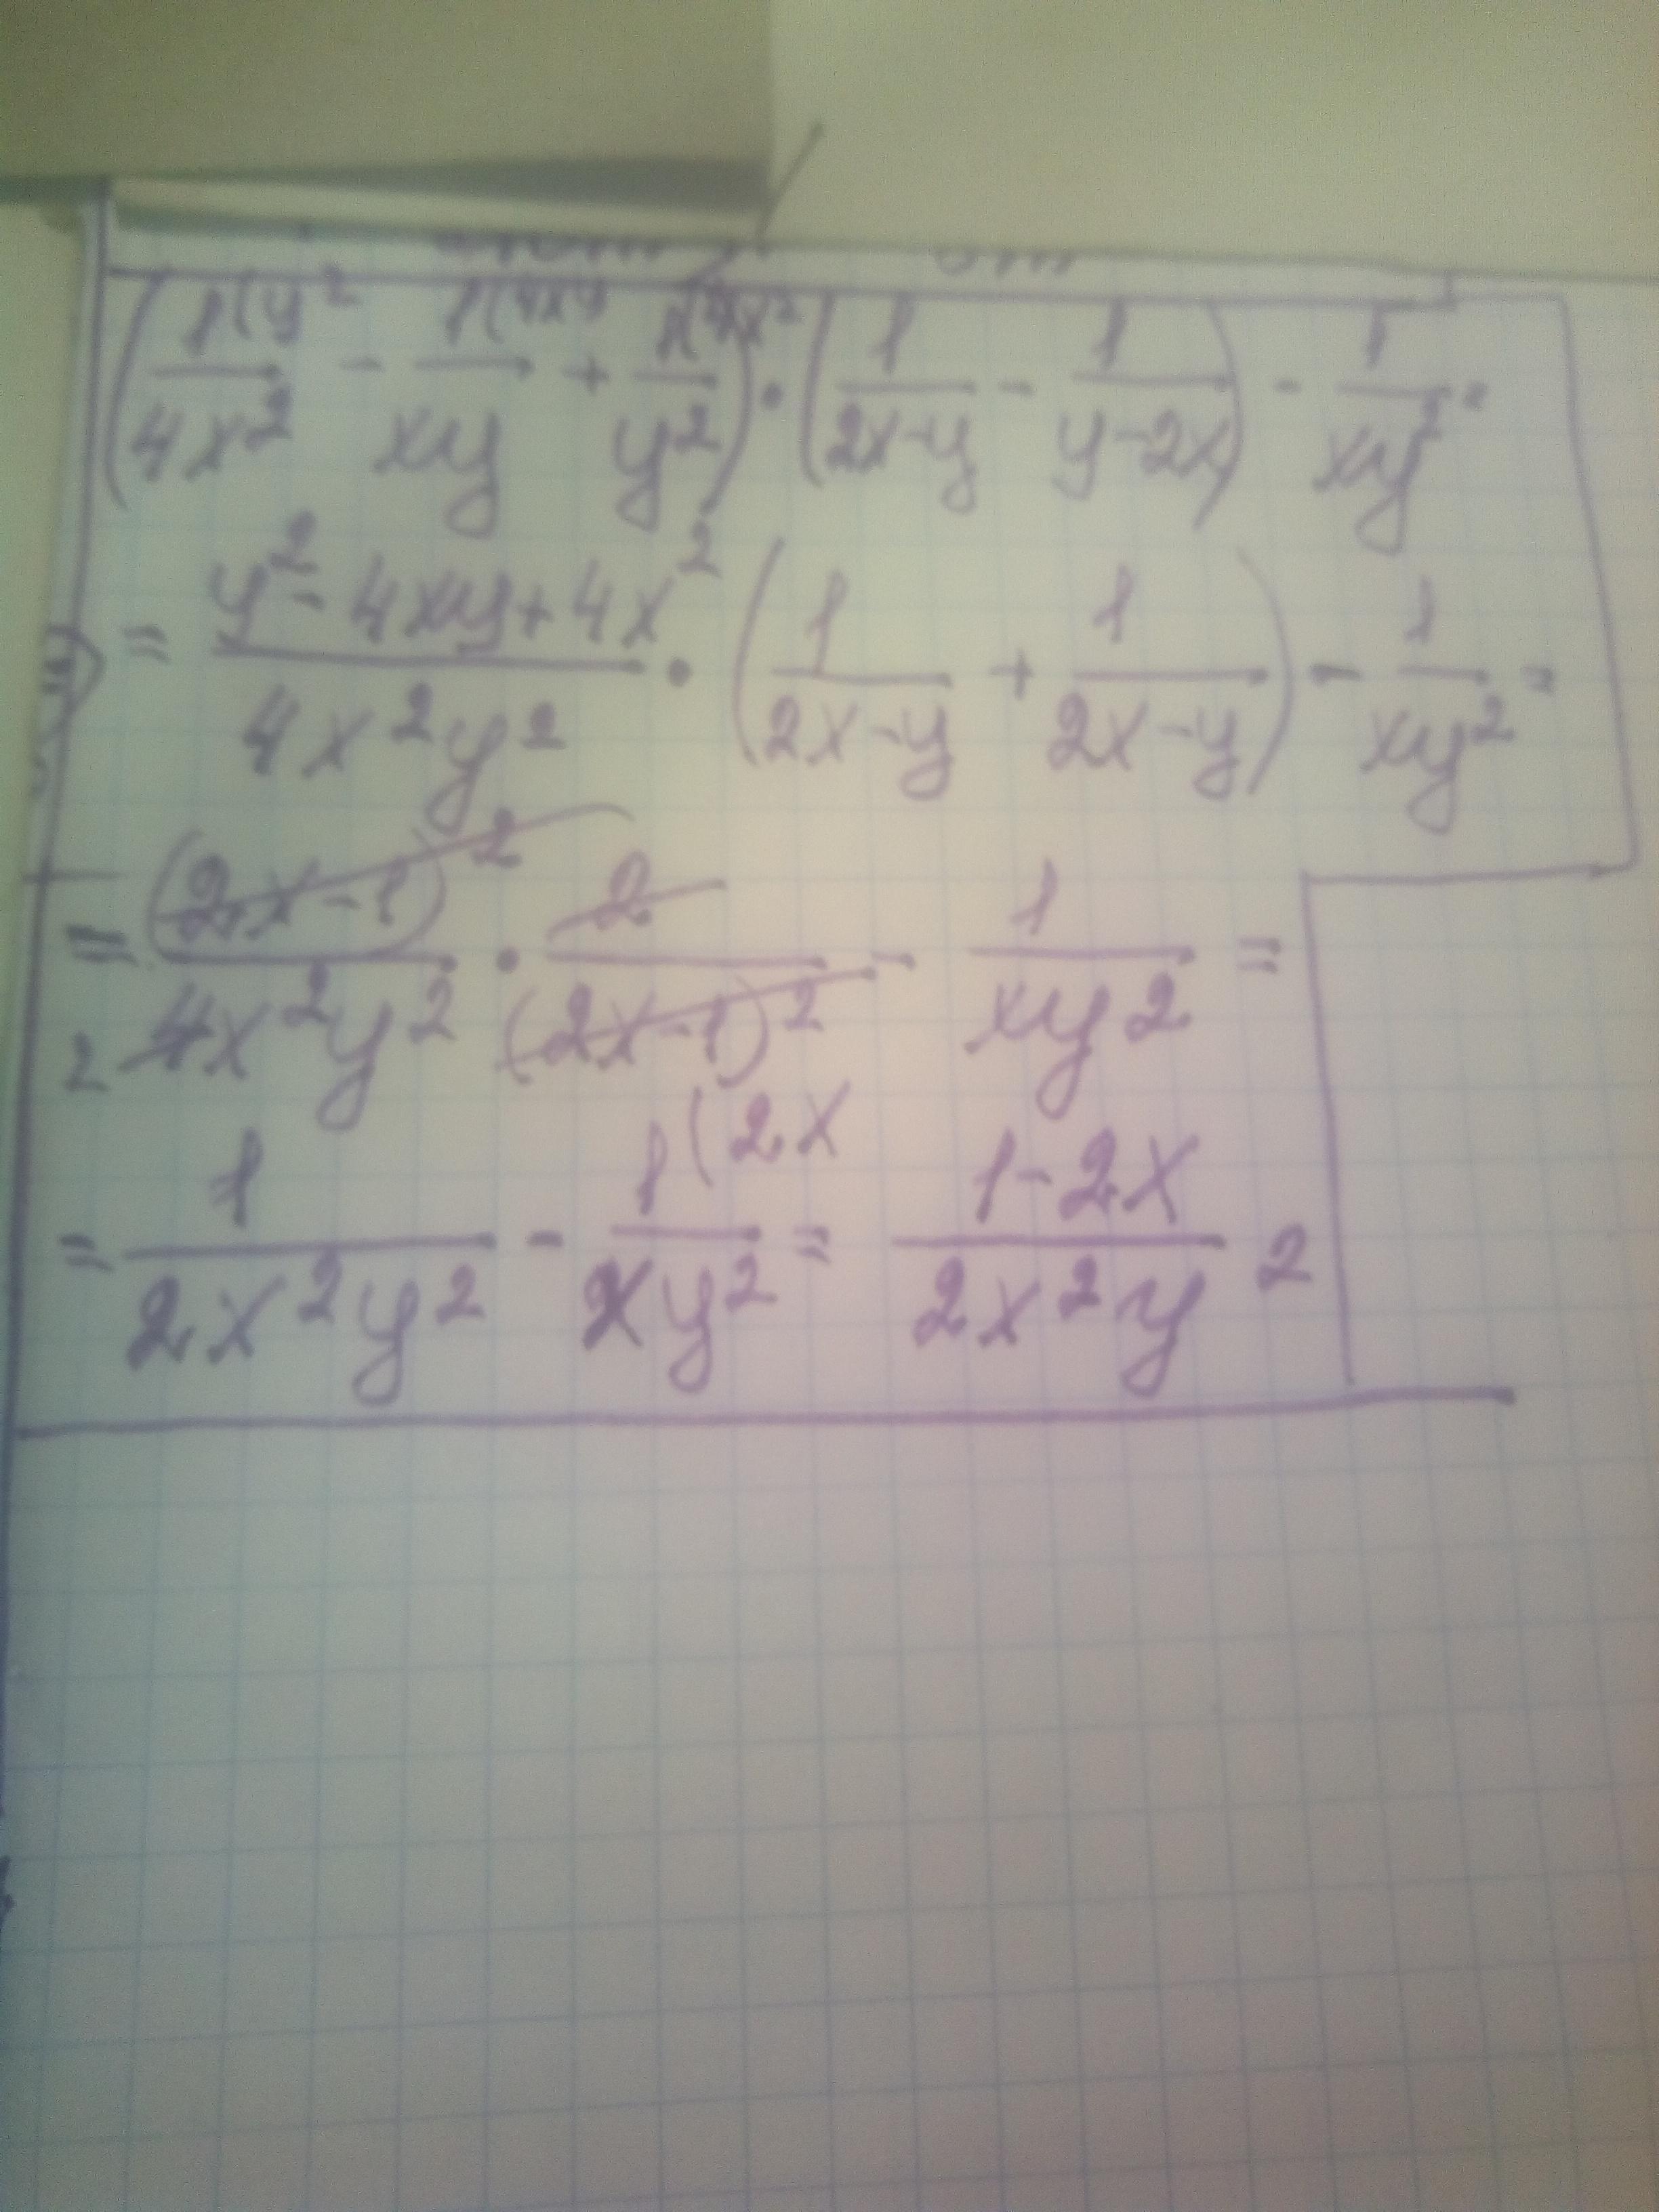 (1(y²/4x² - 1(4xy/xy + 1(4x²/y²) · (1/2x-y - 1/y-2x) - 1/xy² =
= y²-4xy+4x²/4x²y² · (1/2x-y + 1/2x-y) - 1/xy² =
= (2x-1)²/4x²y² · 2/(2x-1)² - 1/xy² =
2
= 1/2x²y² - 1(2x/xy² = 1-2x/2x²y²